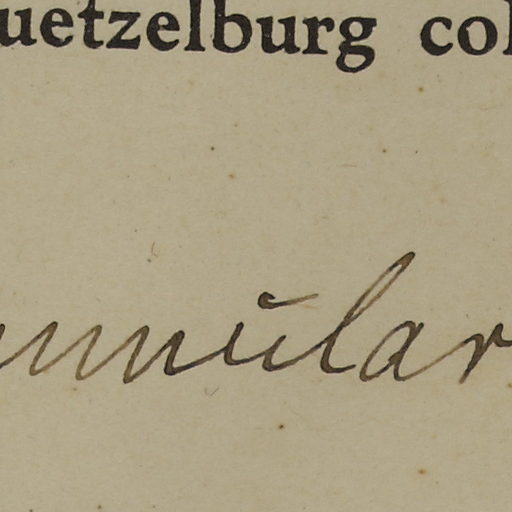 uetzelburg col
nnular